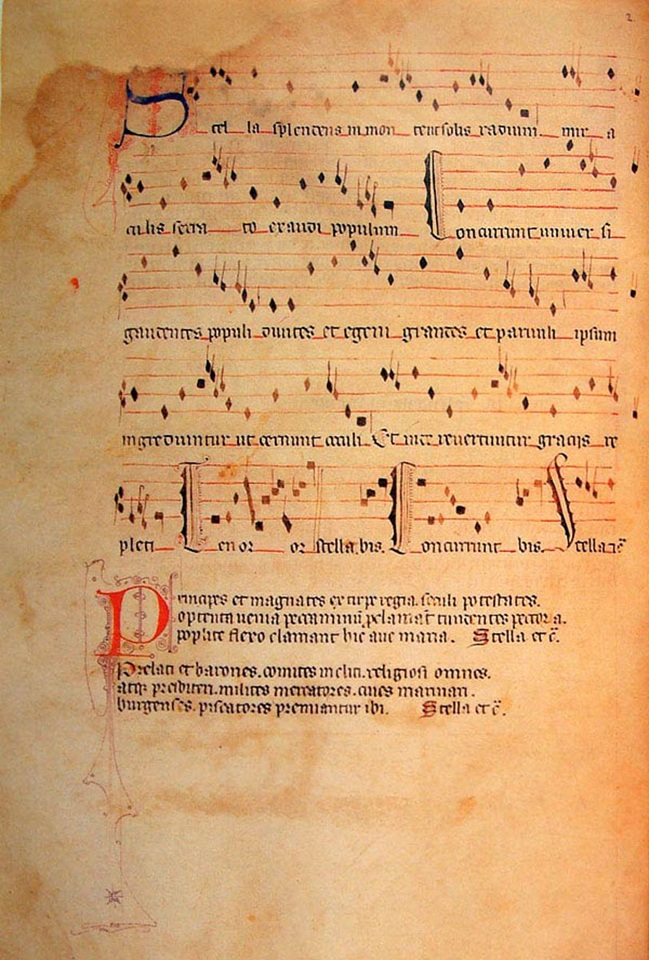 2.
Stel la splendens in mon te ut solis radium mir a
culis serra to exaudi populum Concurrunt univer si
gaudentes populi divites et egeni grandes et parvuli ipsum
ingrediuntur ut cernunt oculi Et inde revertuntur gracijs re
pleti Tenor or stella. bis. Concurrunt bis. Stella
Principes et magnates extirpe regia. seculi potestates.
optenta venia peccaminū. pclamāt tundentes pectora.
poplite flexo clamant hic ave maria. Stella et c̄.
Prelati et barones. comites incliti. religiosi omnes.
atqꝫ presbiteri. milites mercatores. cives marinari.
burgenses. piscatores premiantur ibi. Stella et c̄.